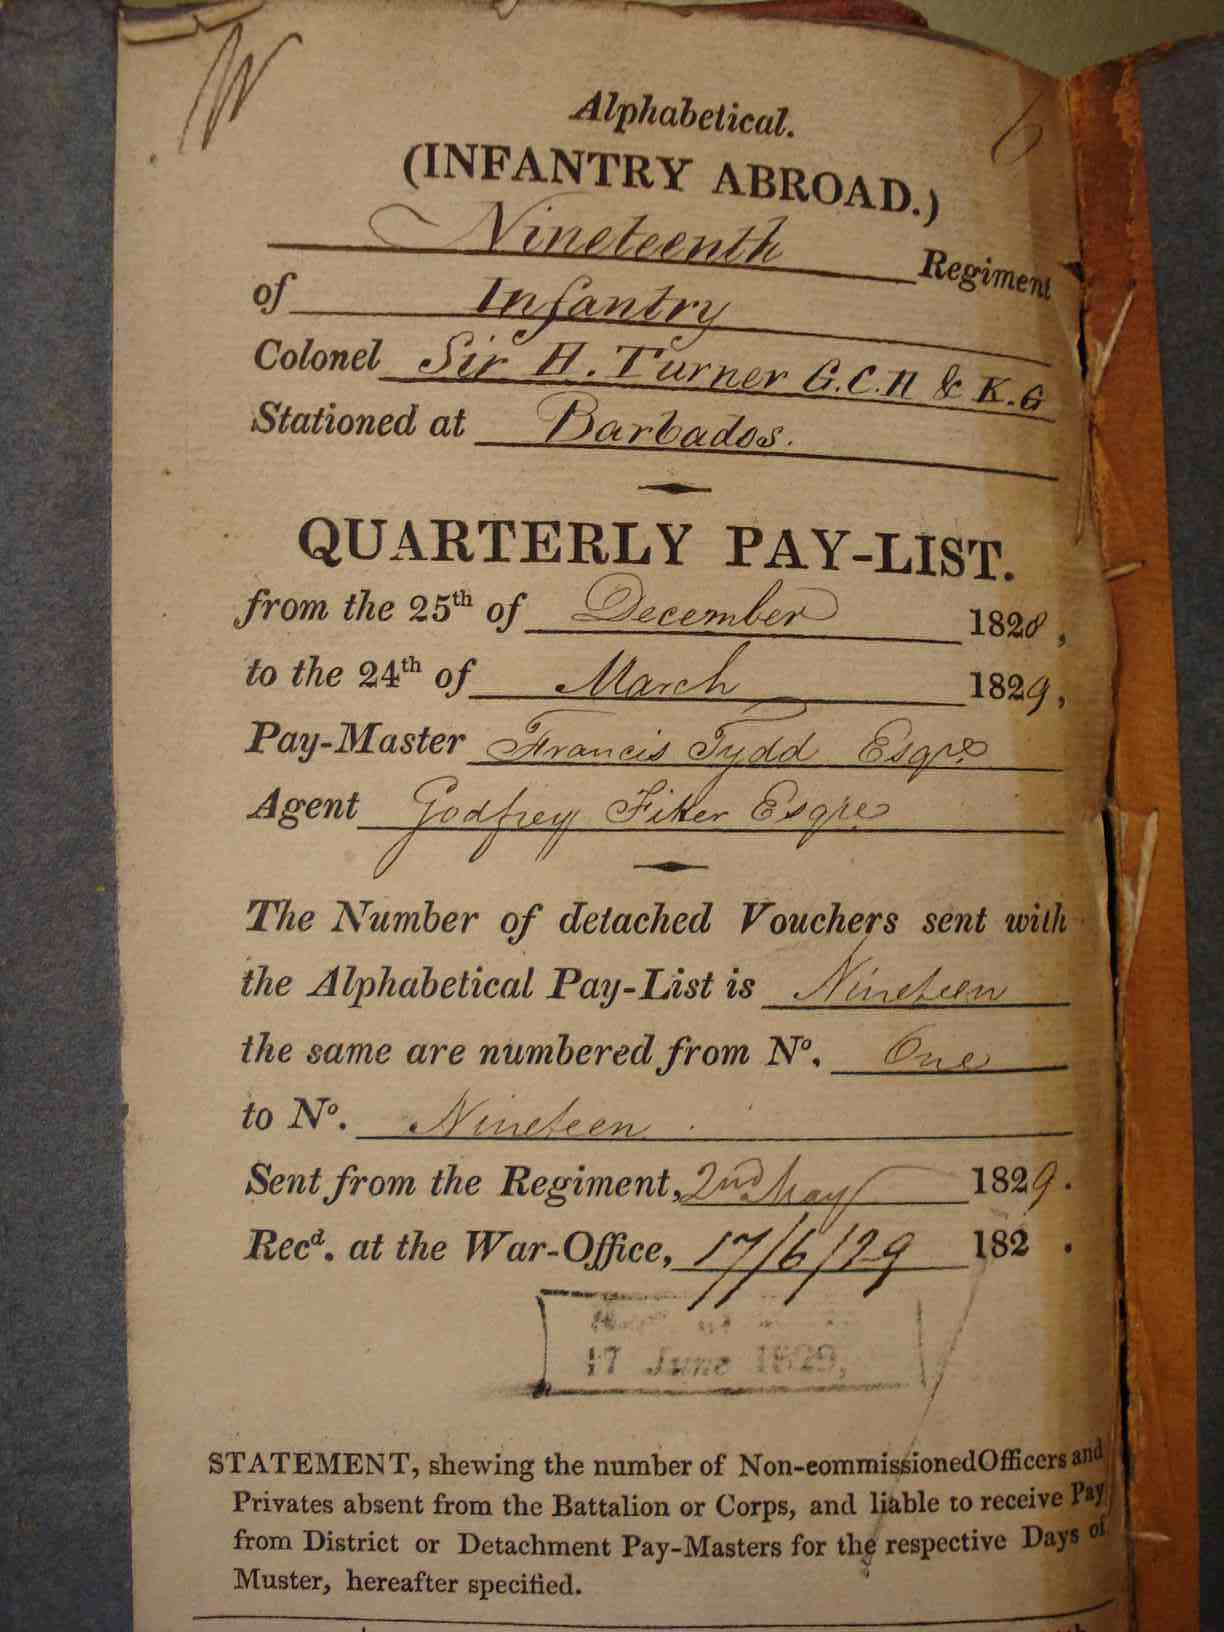 W
6
Alphabetical.
(INFANTRY ABROAD.)
Nineteenth Regiment
of Infantry
Colonel Sir H. Turner G.C.H & K.G
Stationed at Barbados.
QUARTERLY PAY-LIST.
from the 25th of December 1828,
to the 24th of March 1829,
Pay-Master Francis Tydd Esqre
Agent Godfrey Esqre
The Number of detached Vouchers sent with
the Alphabetical Pay-List is Nineteen
the same are numbered from No. One
to No. Nineteen
Sent from the Regiment, 2nd May 1829.
Recd. at the War-Office, 17/6/29 182 .
17 June 1829,
STATEMENT, shewing the number of Non-commissioned Officers and
Privates absent from the Battalion or Corps, and liable to receive Pay
from District or Detachment Pay-Masters for the respective Days of
Muster, hereafter specified.